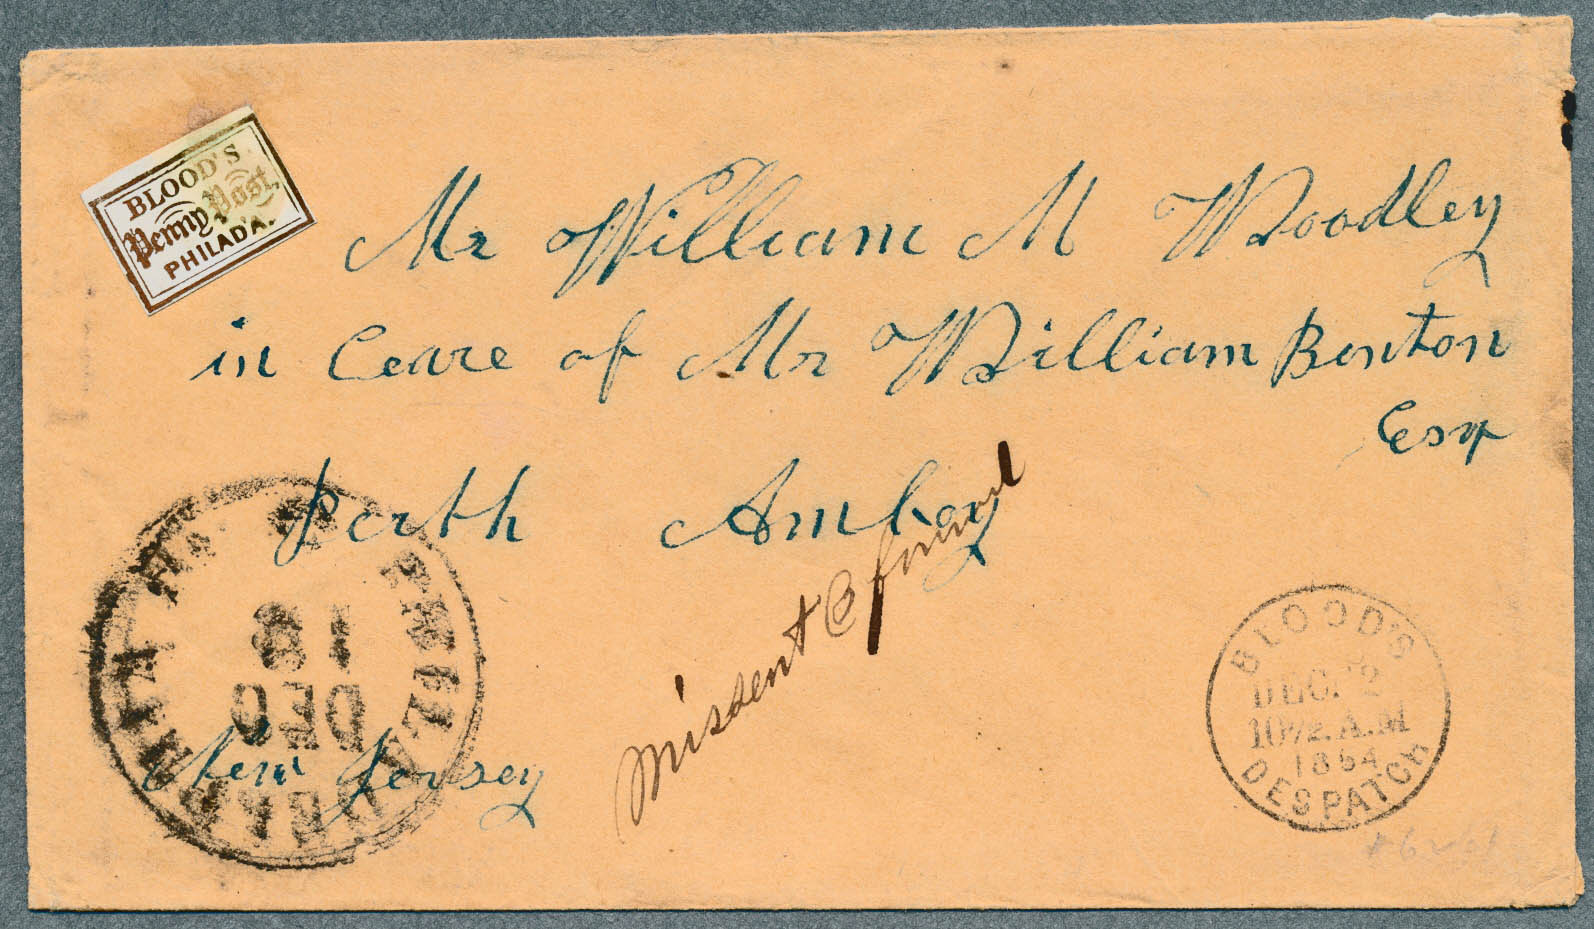 BLOOD'S
Penny Post,
PHILAD'A.
Mr William M Woodley
in Ceare of Mr William Benton
Esqr
Perth Amboy
New Jersey
Missent &
PHILADELPHIA
DEC
BLOOD'S
DEC. 2
10½ A.M
1854
DESPATCH